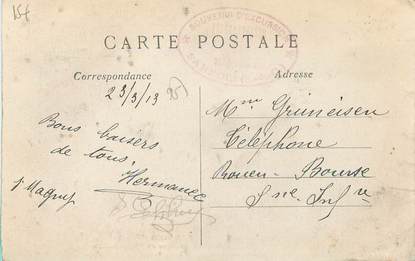 154
SOUVENIR D'EXCURSION
CARTE POSTALE
Correspondance
Adresse
23/3/13
251
Bons baisers
de tous,
Hermance
Mme Grüneisen
Téléphone
Rouen - Bourse
Sne Infre